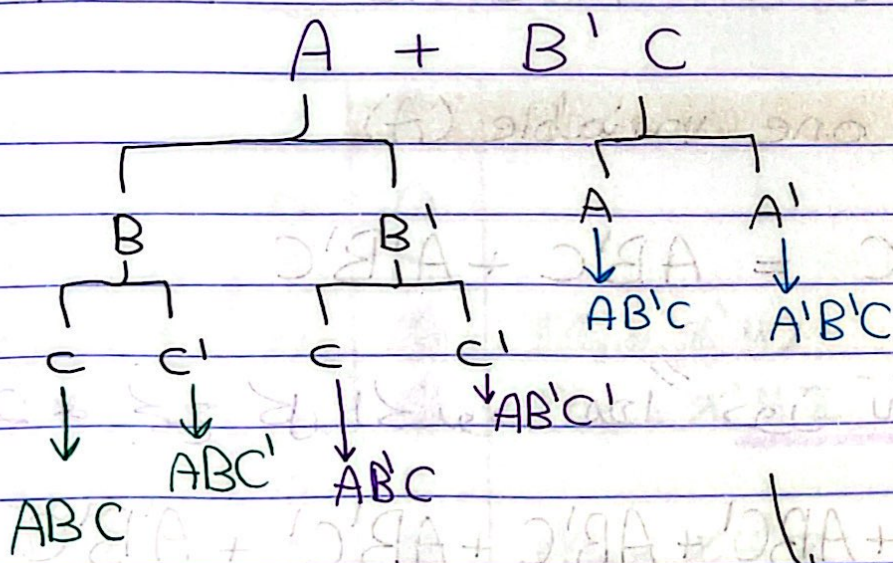 A + B' C
B B' A A'
AB'C A'B'C
C C' C C'
AB'C'
ABC' AB'C
ABC